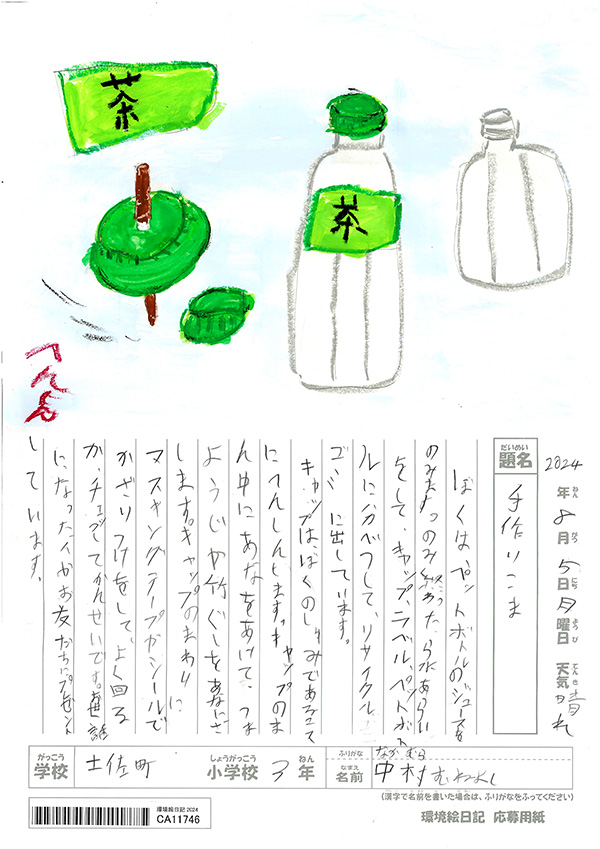 茶
茶
へんしん
2024年8月5日月曜日 天気晴れ
ねん がつ にち ようび てんき
だいめい
題名
手作りこま
ぼくは、ペットボトルのジュースを
のみます。のみ終わったら水あらい
をして、キャップ、ラベル、ペットボト
ルに分べつして、リサイクル
ゴミに出しています。
キャップは、ぼくのしゅみであるこま
にへんしんします。キャップのま
ん中にあなをあけて、つま
ようじか竹ぐしをあなにさ
します。キャップのまわりに
マスキングテープかシールで
かざりつけをして、よく回る
か、チェックしてかんせいです。お世話
になった人やお友だちにプレゼント
しています。
がっこう しょうがっこう ねん
学校 土佐町 小学校 3年
ふりがな なかむら
なまえ
名前 中村むねよし
(漢字で名前を書いた場合は、ふりがなをふってください)
環境絵日記2024
CA11746
環境絵日記 応募用紙